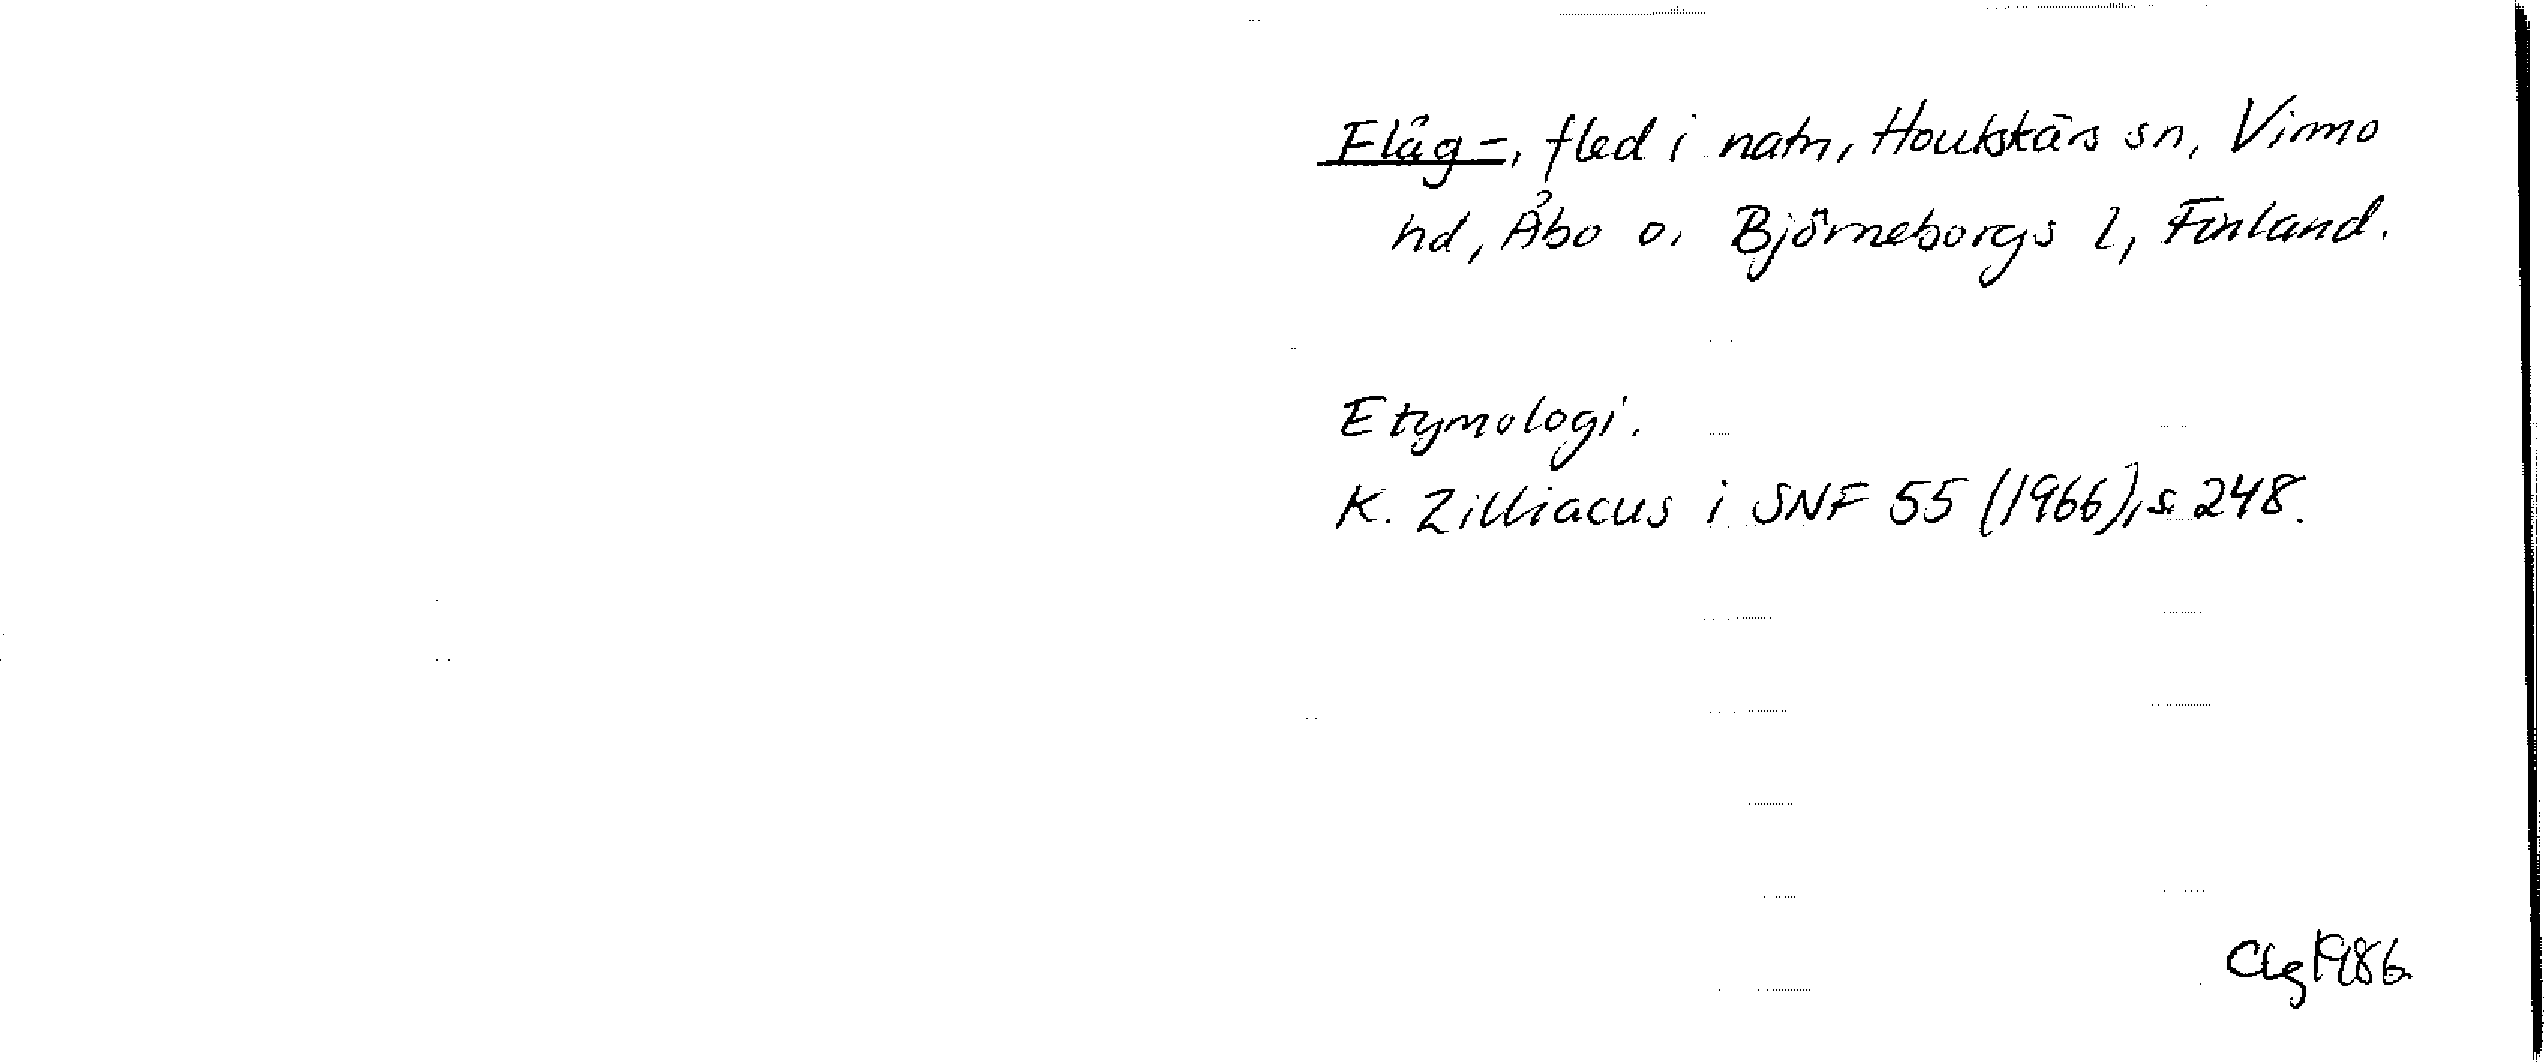 Flåg-, fled i natn, Houtskärs sn, Virmo
hd, Åbo o. Björneborgs l, Finland.
Etymologi.
K. Zilliacus i SNF 55 (1966), s 248.
Clg 1986